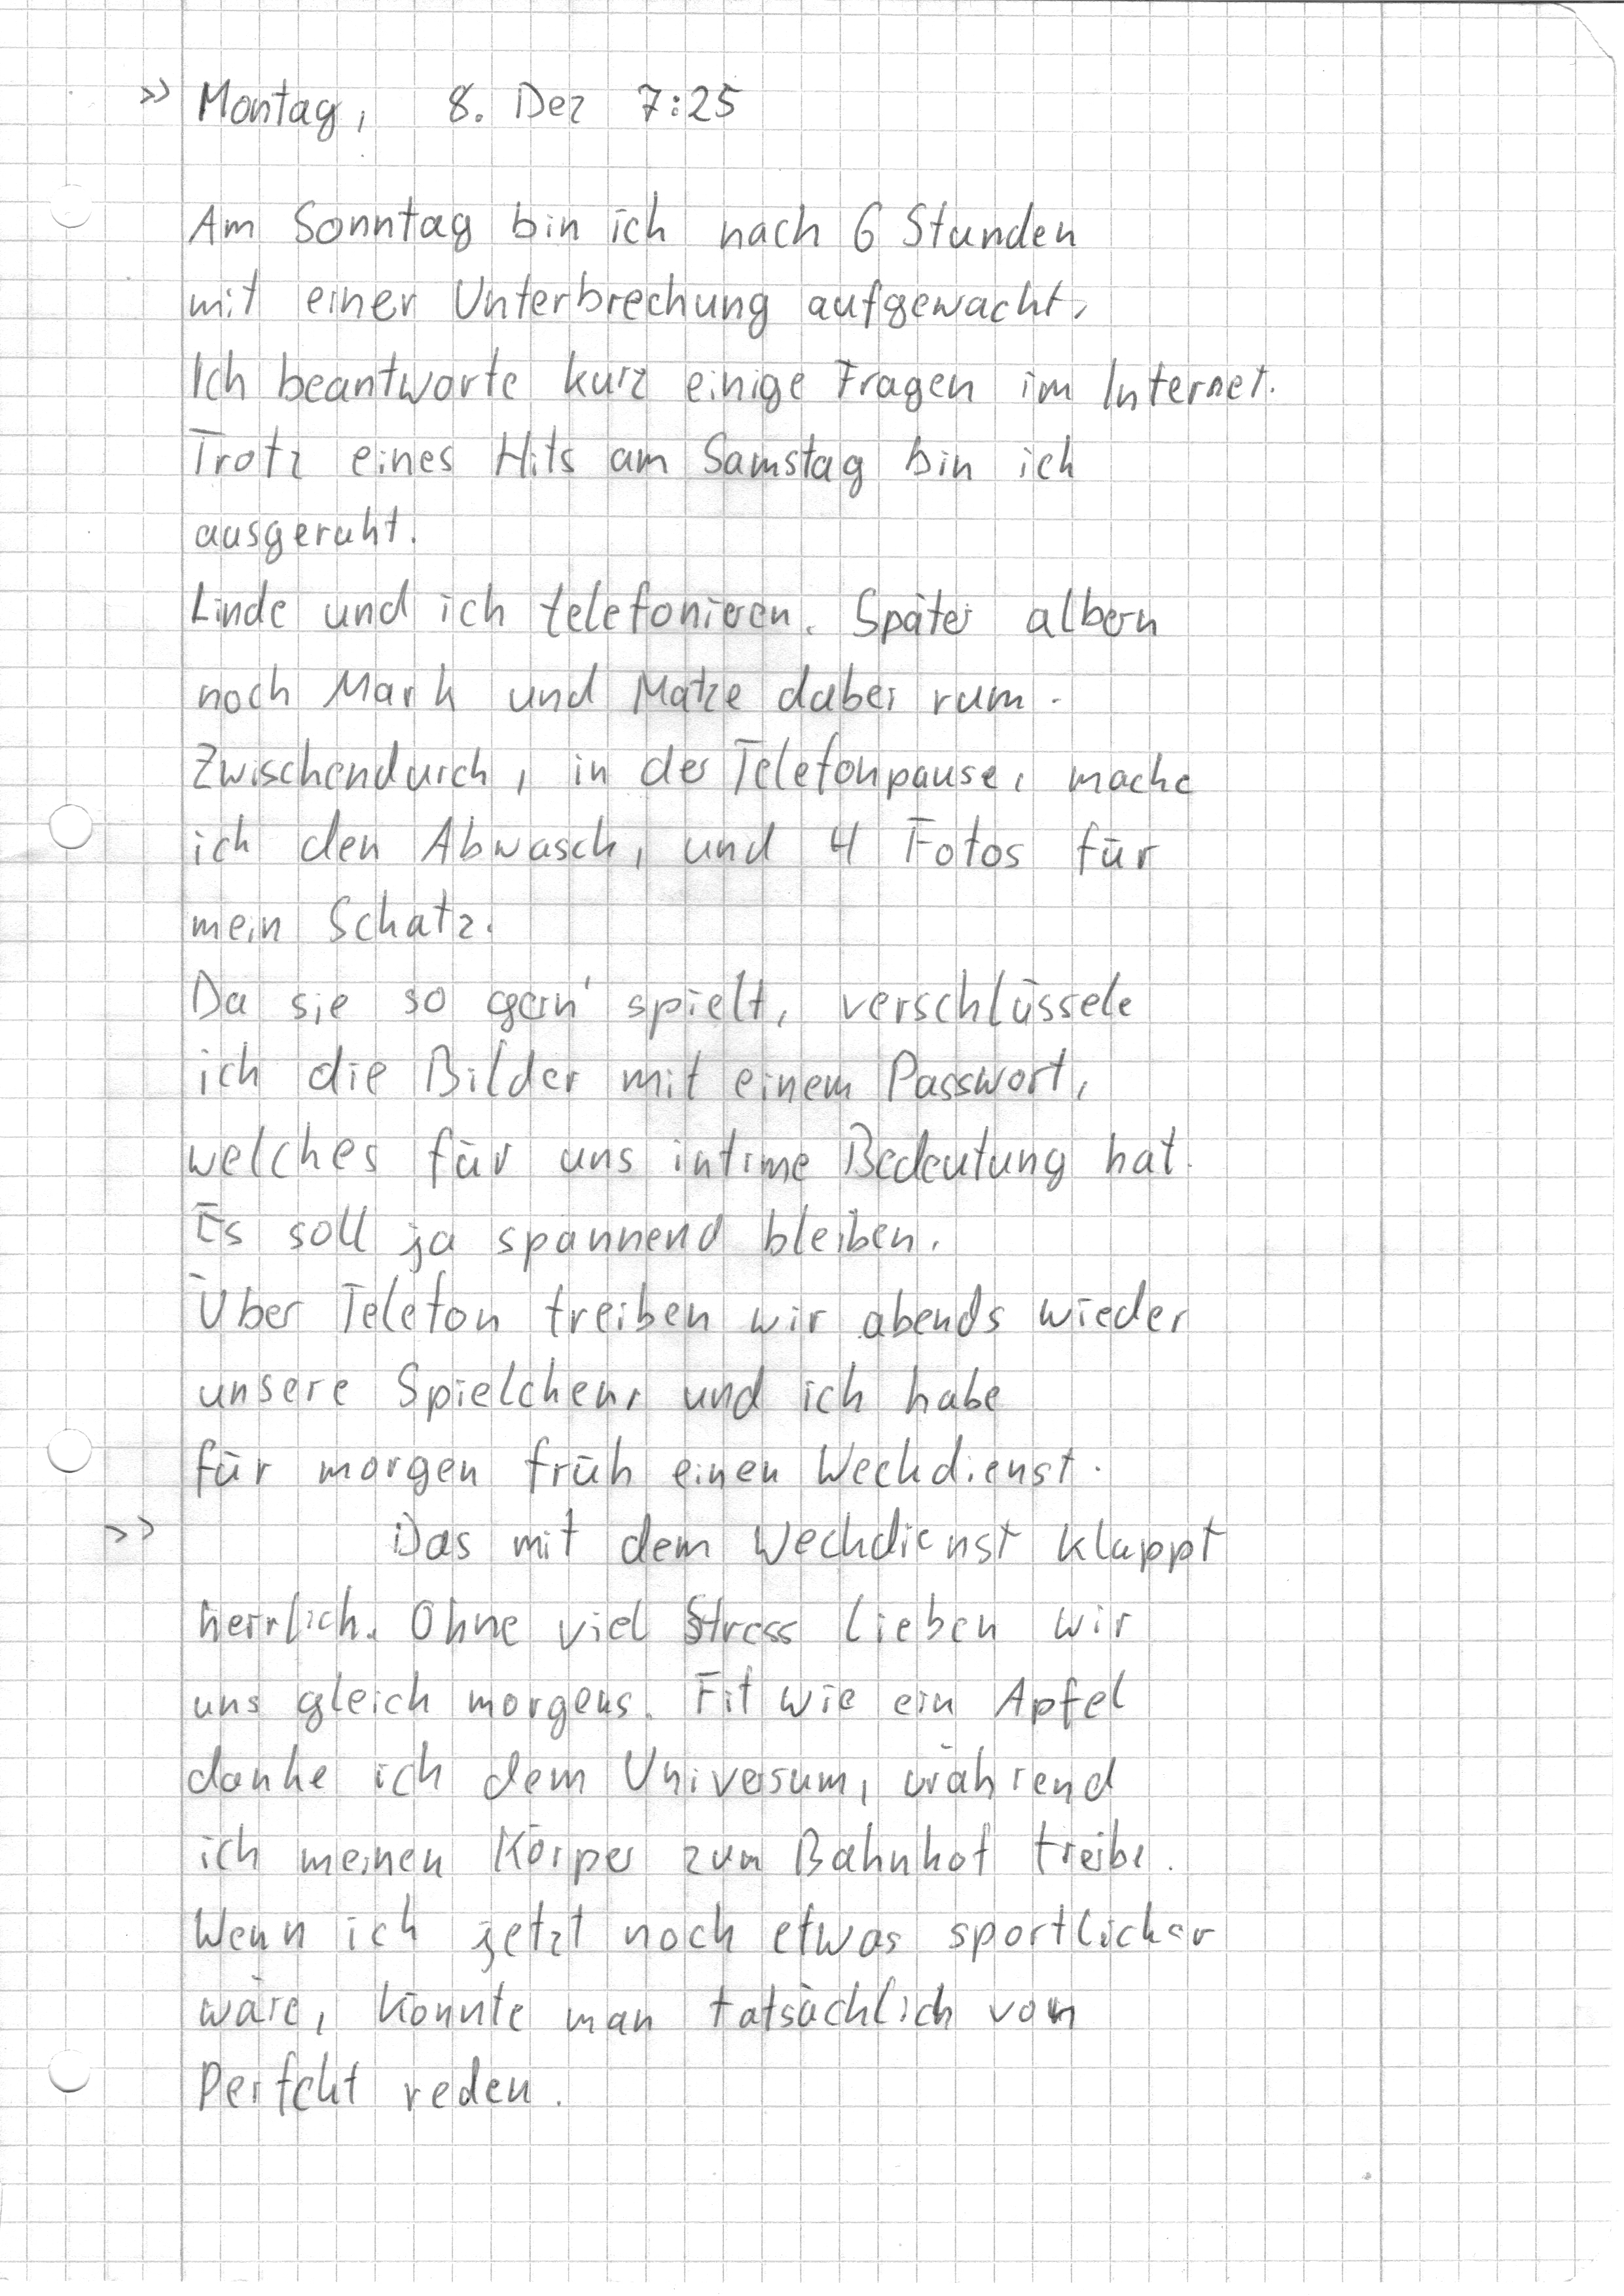 >> Montag, 8. Dez 7:25
Am Sonntag bin ich nach 6 Stunden
mit einer Unterbrechung aufgewacht.
Ich beantworte kurz einige Fragen im Internet.
Trotz eines Hits am Samstag bin ich
ausgeruht.
Linde und ich telefonieren. Später albern
noch Mark und Matze dabei rum.
Zwischendurch, in der Telefonpause, mache
ich den Abwasch, und 4 Fotos für
mein Schatz.
Da sie so gern' spielt, verschlüssele
ich die Bilder mit einem Passwort,
welches für uns intime Bedeutung hat.
Es soll ja spannend bleiben.
Über Telefon treiben wir abends wieder
unsere Spielchen, und ich habe
für morgen früh einen Weckdienst.
>> Das mit dem Weckdienst klappt
herrlich. Ohne viel Stress lieben wir
uns gleich morgens. Fit wie ein Apfel
danke ich dem Universum, während
ich meinen Körper zum Bahnhof treibe.
Wenn ich jetzt noch etwas sportlicher
wäre, könnte man tatsächlich von
Perfekt reden.